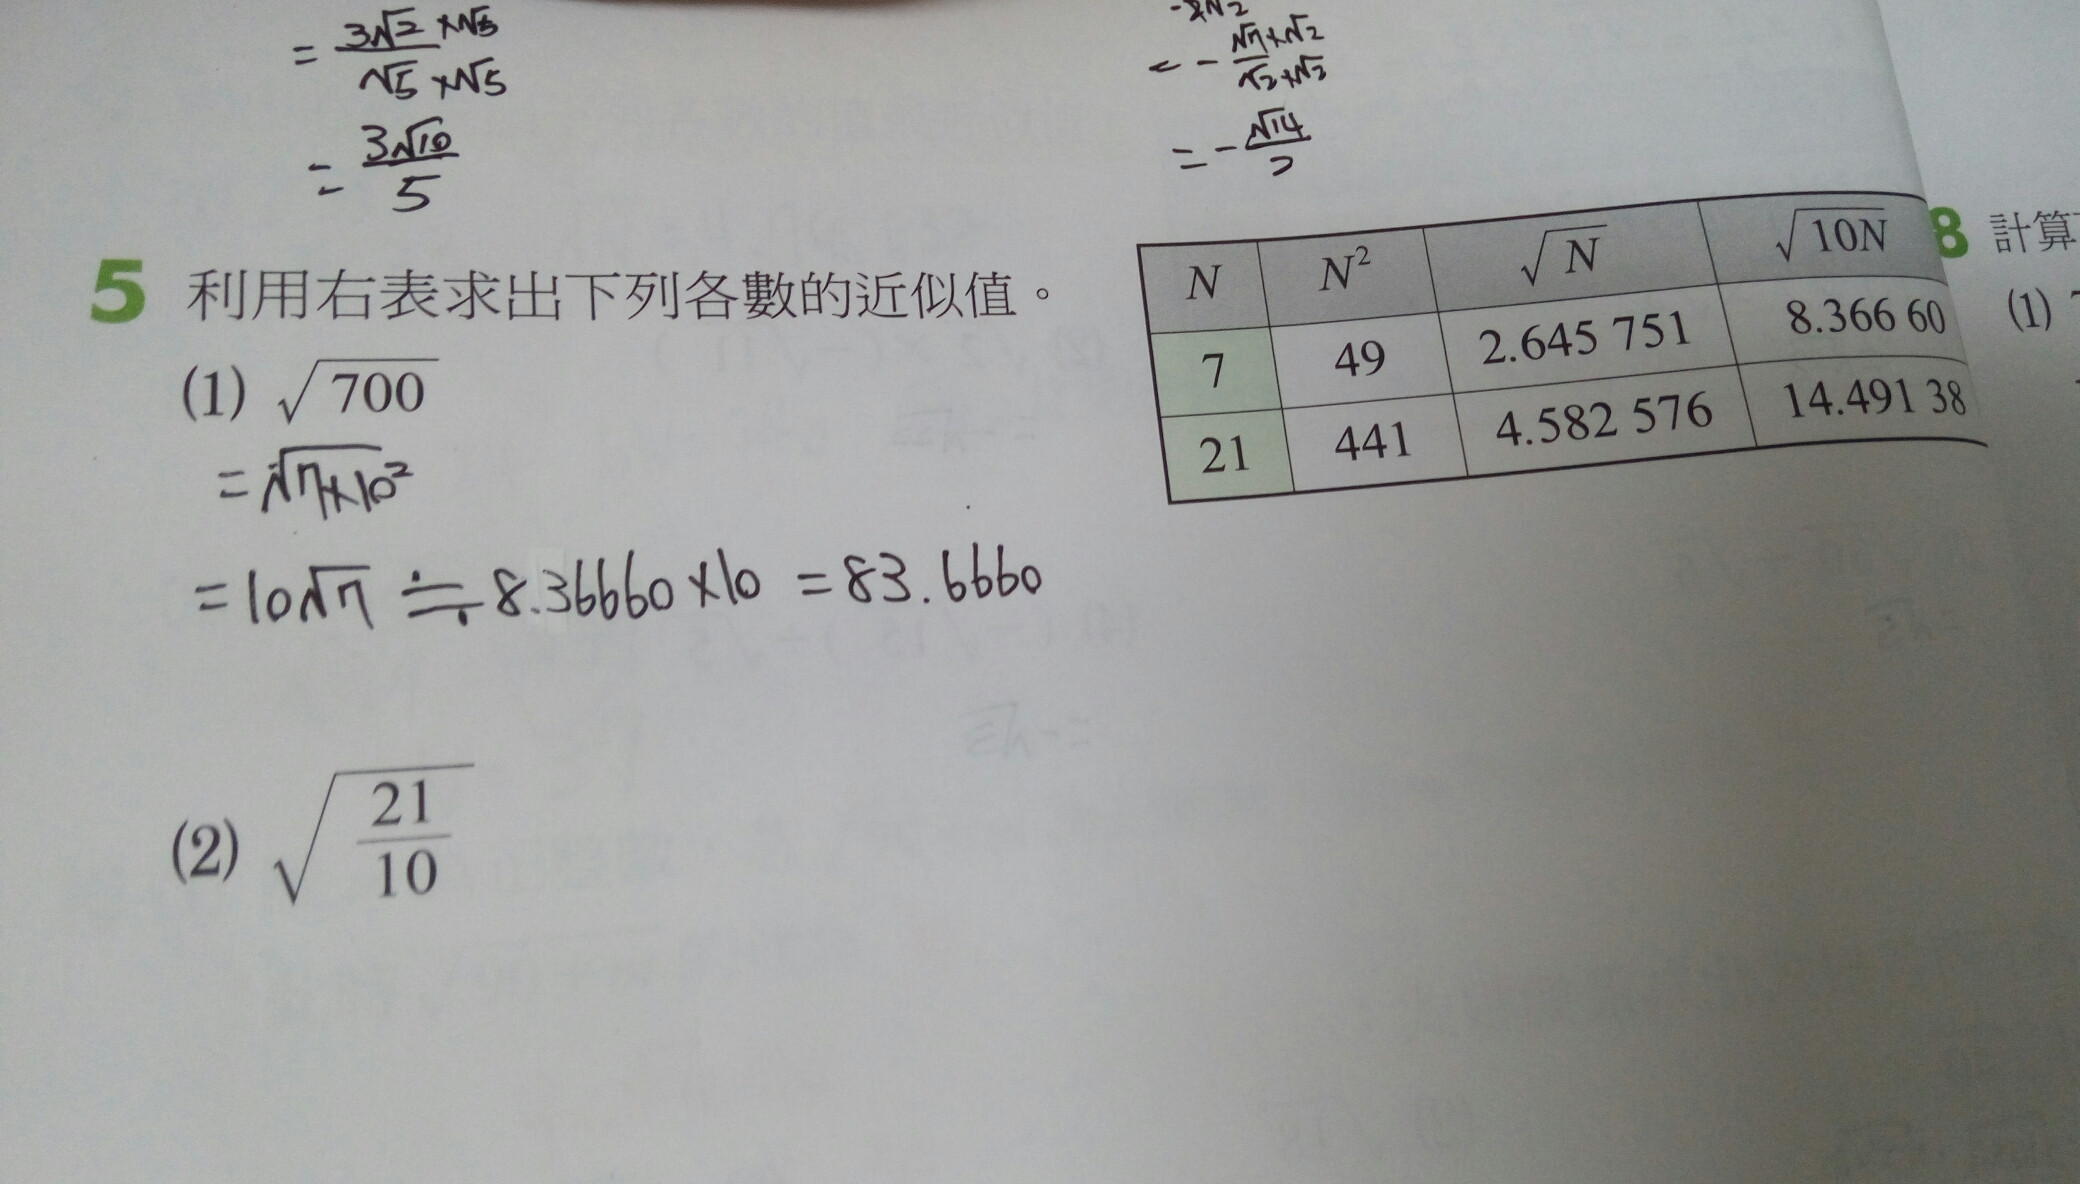 = 3√2 ×√5 / √5 ×√5
= 3√10 / 5
- √7×√2 / √2×√2
= - √14 / 2
5 利用右表求出下列各數的近似值。
N N² √N √10N
7 49 2.645 751 8.366 60
21 441 4.582 576 14.491 38
(1) √700
= √7×10²
= 10√7 ≒ 8.36660 ×10 = 83.6660
(2) √21/10
8 計算
(1)